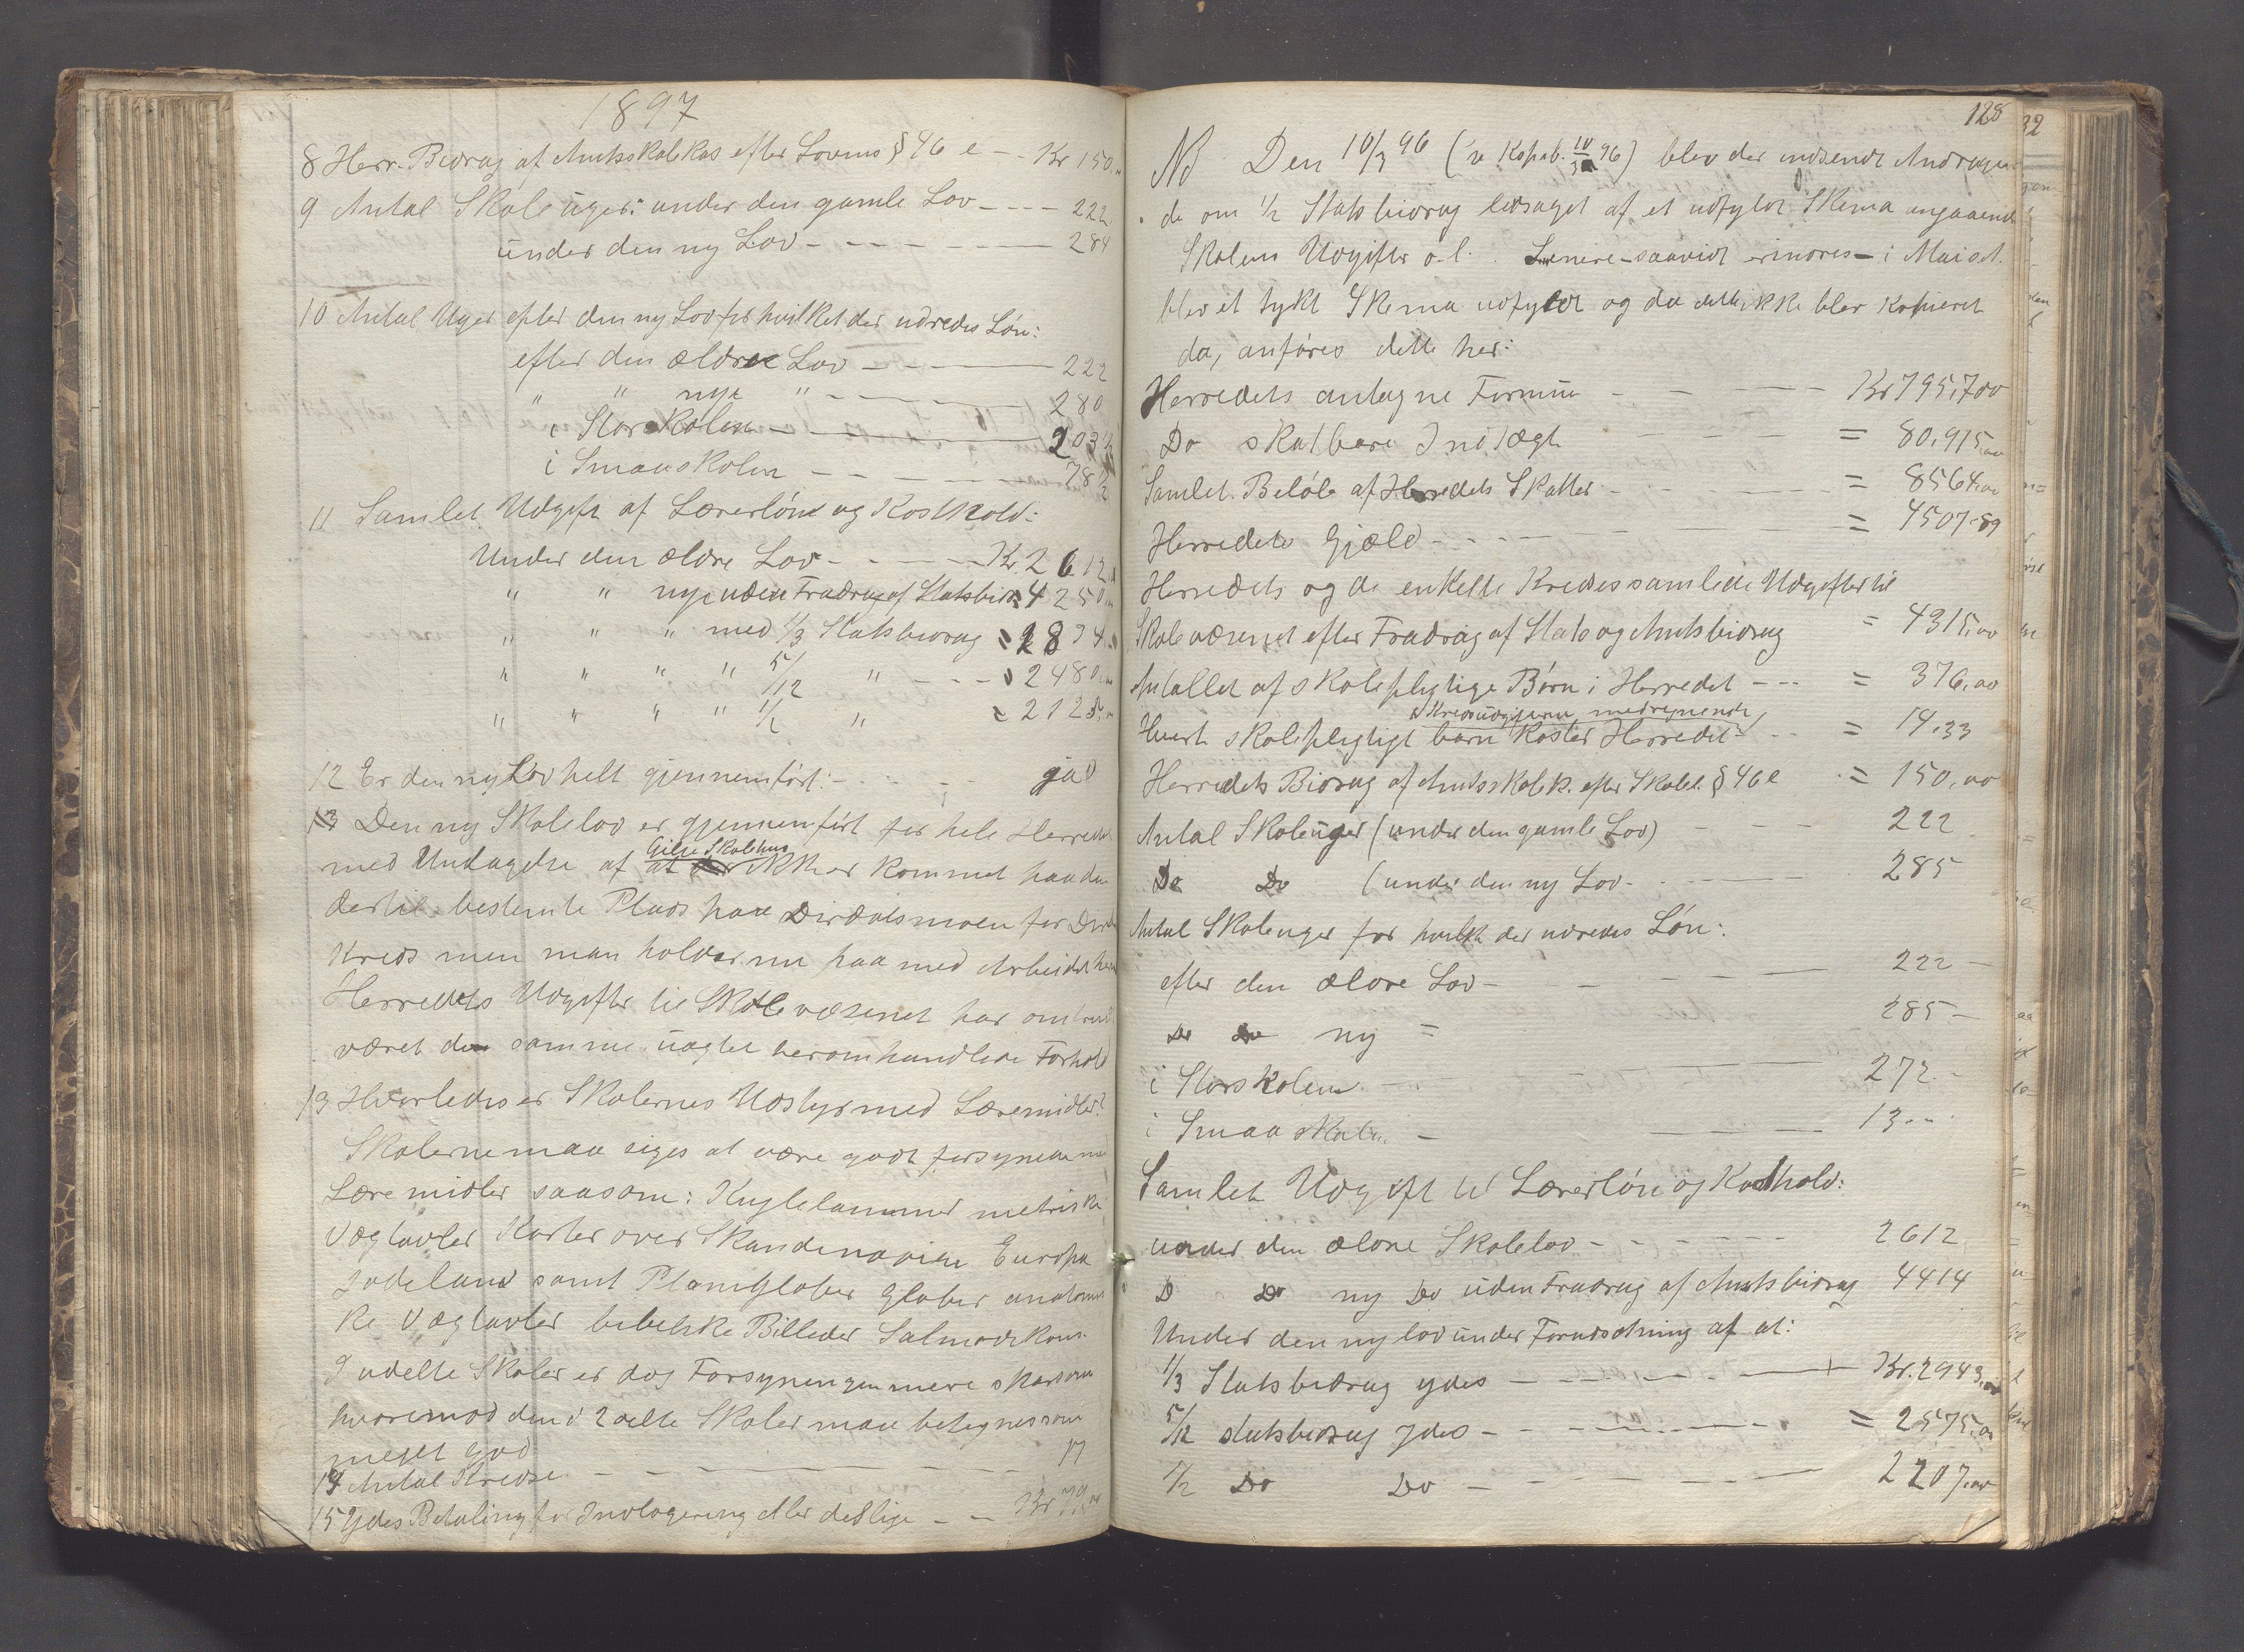 1897
8 Herr. Bidrag af Amtsskolekas efter Lovens § 46 e - - Kr 150,"
9 Antal Skoleuger: under den gamle Lov - - - - 222
under den ny Lov - - - - - - - 284
10 Antal Uger efter den ny Lov for hvilket der udredes Løn:
efter den ældre Lov - - - - 222
" " nye " - - - - - 280
i Storskolen - - - - 203 ½
i Smaaskolen - - - - - 78 ½
11 Samlet Udgift af Lærerløn og Kosthold:
Under den ældre Lov - - - - Kr. 2612
" " nye uden Fradrag af Statsbidr. 4250
" " " med 1/3 Statsbidrag
" " " " 5/12 " - - - 2480
" " " " 1/2 " 2125
12 Er den ny Lov helt gjennemført: - - - - - ja
13 Den ny Skolelov er gjennemført for hele Herredet
med Undtagelse af at Gilje Skolehus ikke er kommet paa den
dertil bestemte Plads paa Dirdalsmoen for
Kreds men man holder nu paa med Arbeidet
Herredets Udgifter til Skolevæsenet har omtrent
været den samme uagtet heromhandlede Forhold
13 Hvorledes er Skolernes Udstyr med Læremidler?
Skolerne maa siges at være godt forsynede
Læremidler saasom: Kuglerammer metriske
Vægtavler Karter over Skandinavien Europa
Jødeland samt Planiglober Glober anatomis
ke Vægtavler bibelske Billeder
I udelte Skoler er dog Forsyningen mere sparsom
hvorimod den i 2delte Skoler maa betegnes som
meget god
14 Antal Kredse - - - - - - 17
15 Ydes Betaling for Indlogering eller deslige - - Kr 79,00
128
NB Den 10/3 96 (se Kopieb. 10/3 96) blev der indsendt Andragen
de om 1/2 Statsbidrag ledsaget af et udfyldt Skema angaaende
Skolens Udgifter o.l. Senere - saavidt erindres - i Mai s.A.
blev et trykt Skema udfyldt og da dette ikke blev kopieret
da, anføres dette her:
Herredets antagne Formue - - - Kr 795,700
Do skatbare Indtægt - - - = 80,915,00
Samlet Beløb af Herredets Skatter - - - = 8564,00
Herredets Gjæld - - - - = 4507,89
Herredets og de enkelte Kredses samlede Udgifter til
Skolevæsenet efter Fradrag af Stats og Amtsbidrag = 4315,00
Antallet af skolepligtige Børn i Herredet - - - = 376,00
Kredsudgifterne medregnende
Hvert skolepligtigt barn koster Herredet - - = 14,33
Herredets Bidrag af Amtsskolek. efter Skolel. § 46 e = 150,00
Antal Skoleuger (under den gamle Lov) - - - 222
Do Do (under den ny Lov - - - 285
Antal Skoleuger for hvilke der udredes Løn:
efter den ældre Lov - - - 222 -
Do Do ny = 285 -
i Storskolen - - - 272 -
i Smaaskolen - - - 13 --
Samlet Udgift til Lærerløn og Kosthold:
under den ældre Skolelov - - - - - - 2612
D Do ny Do uden Fradrag af Amtsbidrag 4414
Under den ny lov under Forudsetning af at:
1/3 Statsbidrag ydes - - - - - Kr. 2943,00
5/12 statsbidrag ydes - - - - - = 2575,00
1/2 Do Do - - - - - 2207,00
32